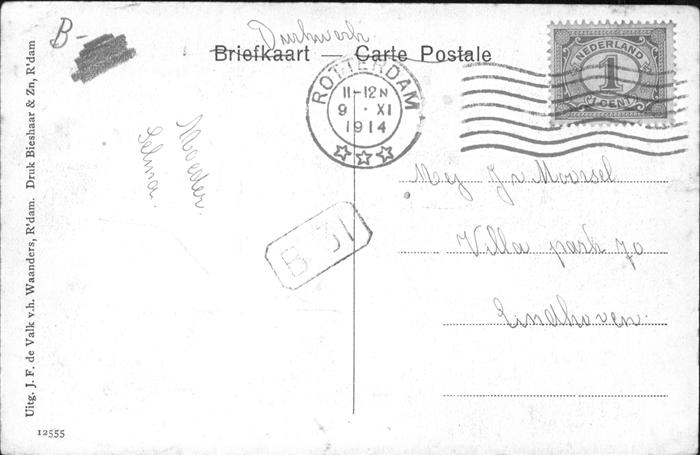 B-
Drukwerk.
Briefkaart — Carte Postale
ROTTERDAM
11-12 N
9 · XI
1914
NEDERLAND
1
CENT
Moeder.
Selma.
B 31
Mej Jv Moorsel
Villa park 70
Eindhoven.
Uitg. J. F. de Valk v.h. Waanders, R'dam. Druk Bieshaar & Zn, R'dam
12555